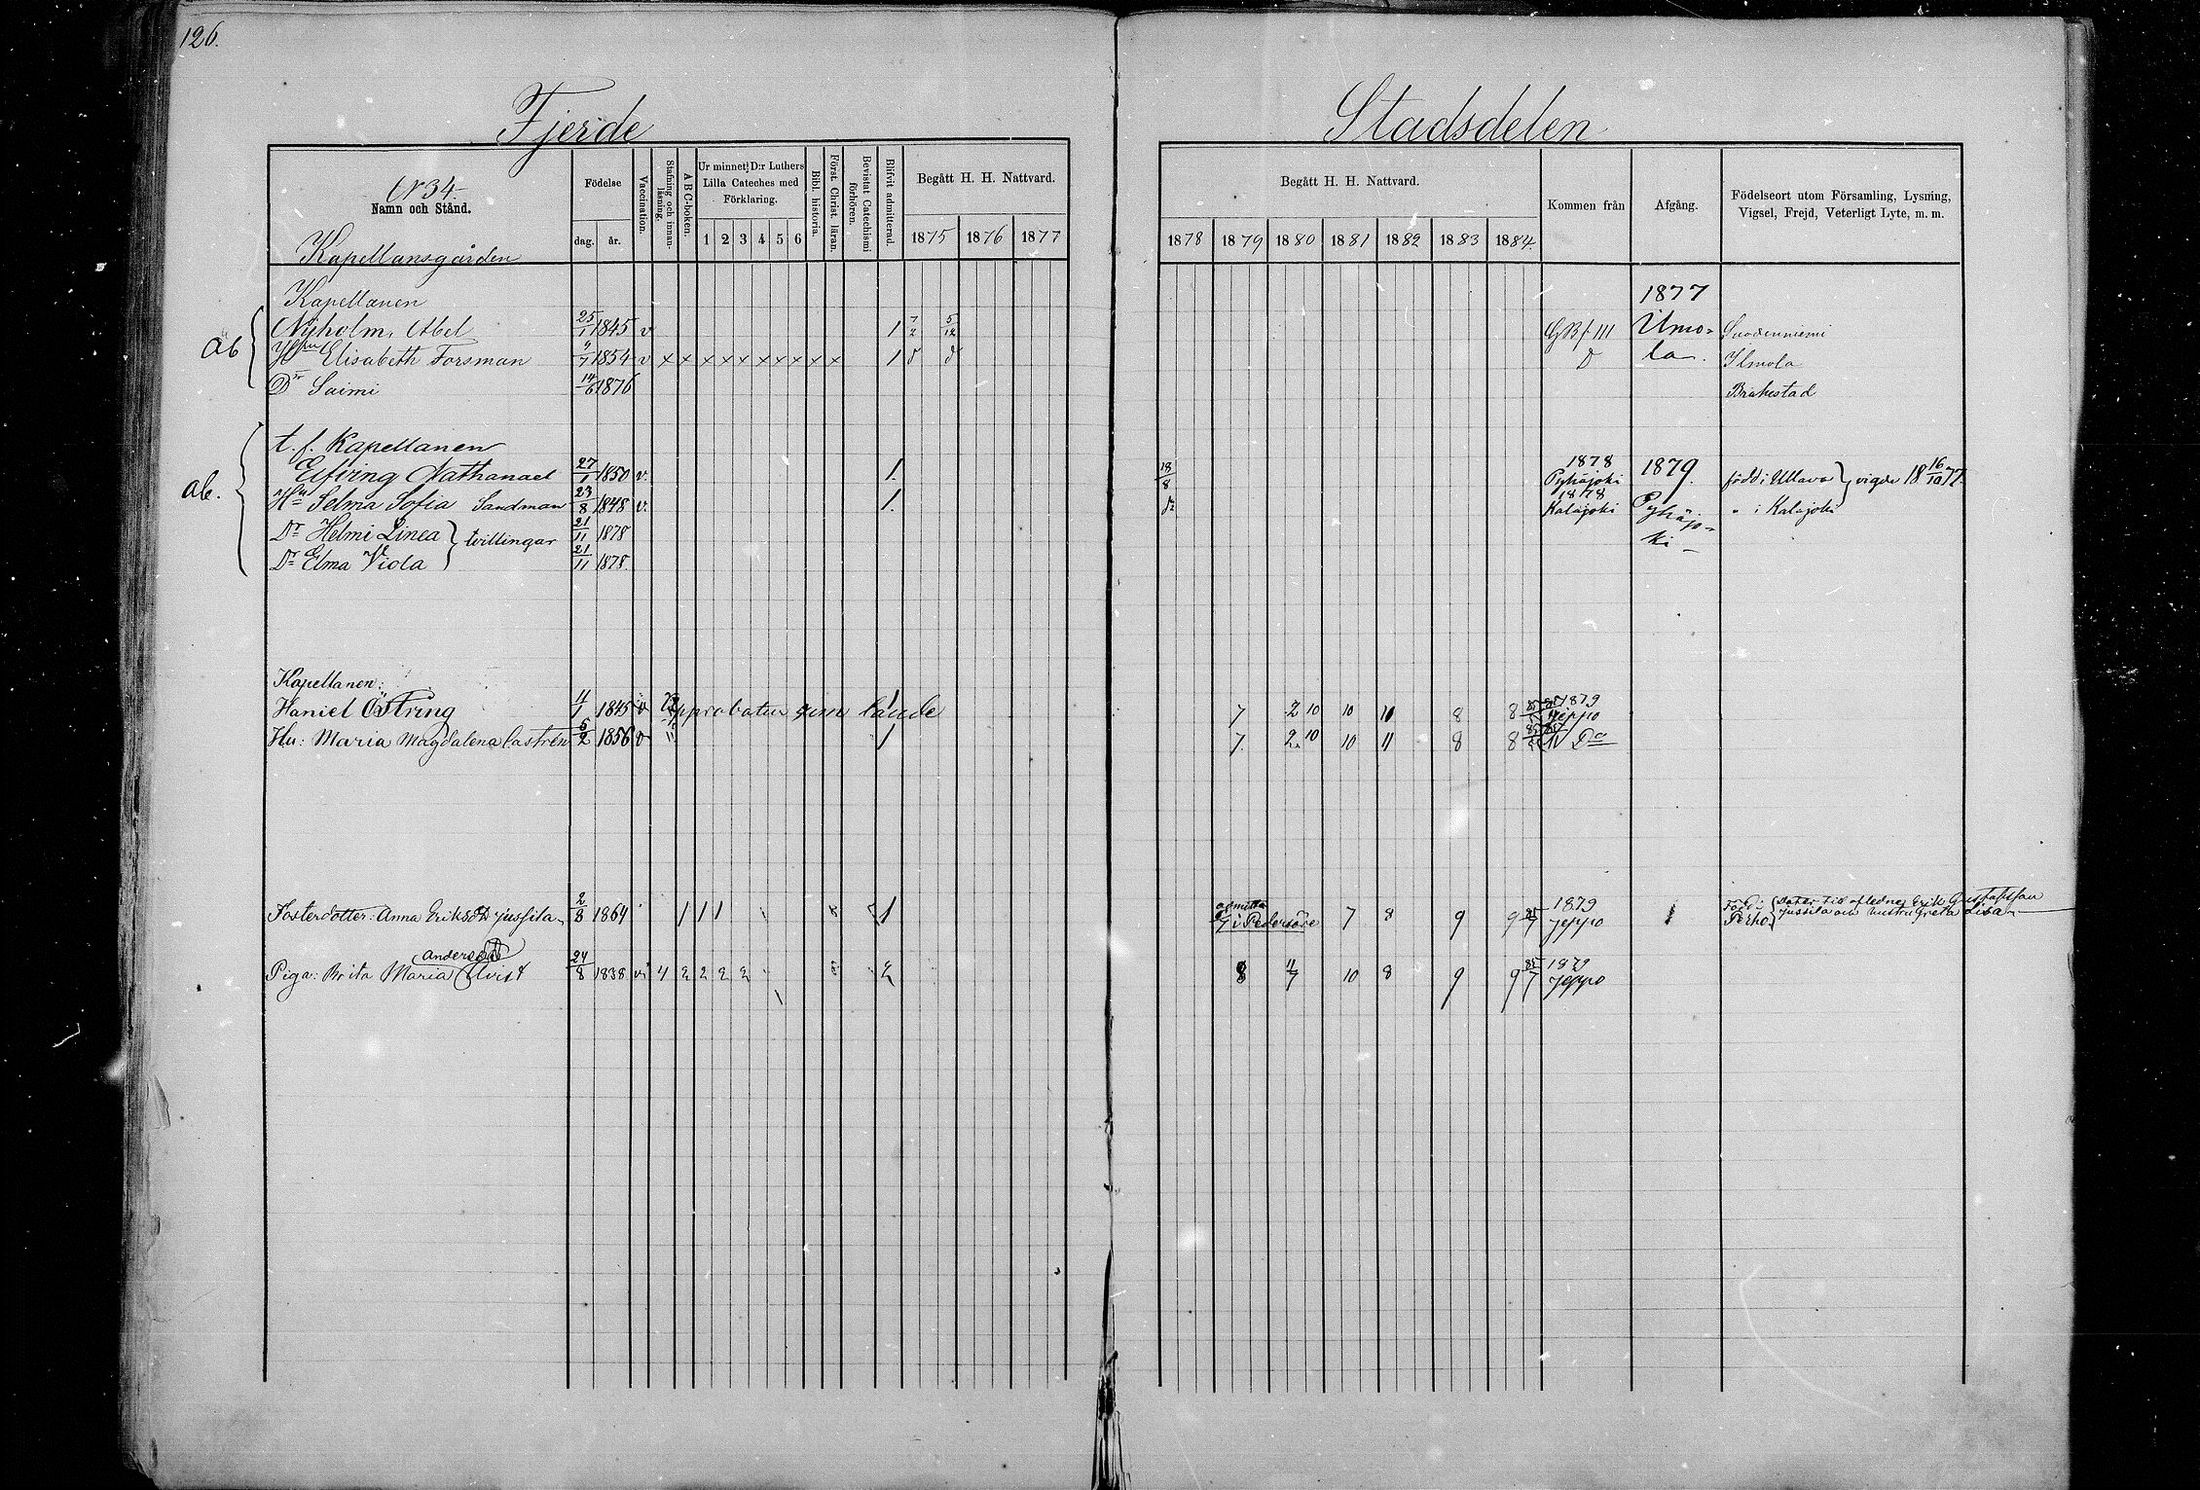 126.
Fjerde Stadsdelen
N 34.
Namn och Stånd.
Kapellansgården
Födelse
dag. år.
Vaccination.
Stafning och innanläsning.
A B C-boken.
Ur minnet: D:r Luthers
Lilla Cateches med
Förklaring.
1 2 3 4 5 6
Bibl. historia.
Först. Christ. läran.
Bevistat Catechismi förhören.
Blifvit admitterad.
Begått H. H. Nattvard.
1875 1876 1877
Begått H. H. Nattvard.
1878 1879 1880 1881 1882 1883 1884
Kommen från
Afgång.
Födelseort utom Församling, Lysning,
Vigsel, Frejd, Veterligt Lyte, m. m.
Kapellanen 1877
ab Nyholm, Abel 25/1 1845 v 1 7/2 5/12 Ilmo- Suodenniemi
Elisabeth Forsman 1854 v x x x x x x x x x x 1 la. Ilmola
Dr Saimi 14/6 1876 Brahestad
ab. t. f. Kapellanen
Elfving Nathanael 27/1 1850 v. 1. 18/8 1878 Pyhäjoki 1879. född i Ullava } vigde 18 16/10 77.
Hu Selma Sofia Sandman 23/8 1848 v. 1. 1878 Kalajoki Pyhäjo- " i Kalajoki
Dr Helmi Linea } tvillingar 21/11 1878 ki
Dr Elma Viola 21/11 1878.
Kapellanen:
Haniel Östring 4/1 1845 v approbatur cum laude 7 2 10 10 10 8 8 1879 Jeppo
Hu: Maria Magdalena Castrén 5/2 1856 v 1 7. 2. 10 10 11 8 8 Do
Fosterdotter: Anna Eriksdr Jussila 2/8 1864 1 1 1 1 admitt. i Pedersöre 7 8 9 9 1879 Jeppo Född i Perho. { dotter till aflednes Erik Gustafsson
Jussila o. hustru Greta Lisa
Andersdr
Piga: Brita Maria Qvist 24/8 1838 v 4 2 2 2 2 2 8 11/7 10 8 9 9 1879 Jeppo